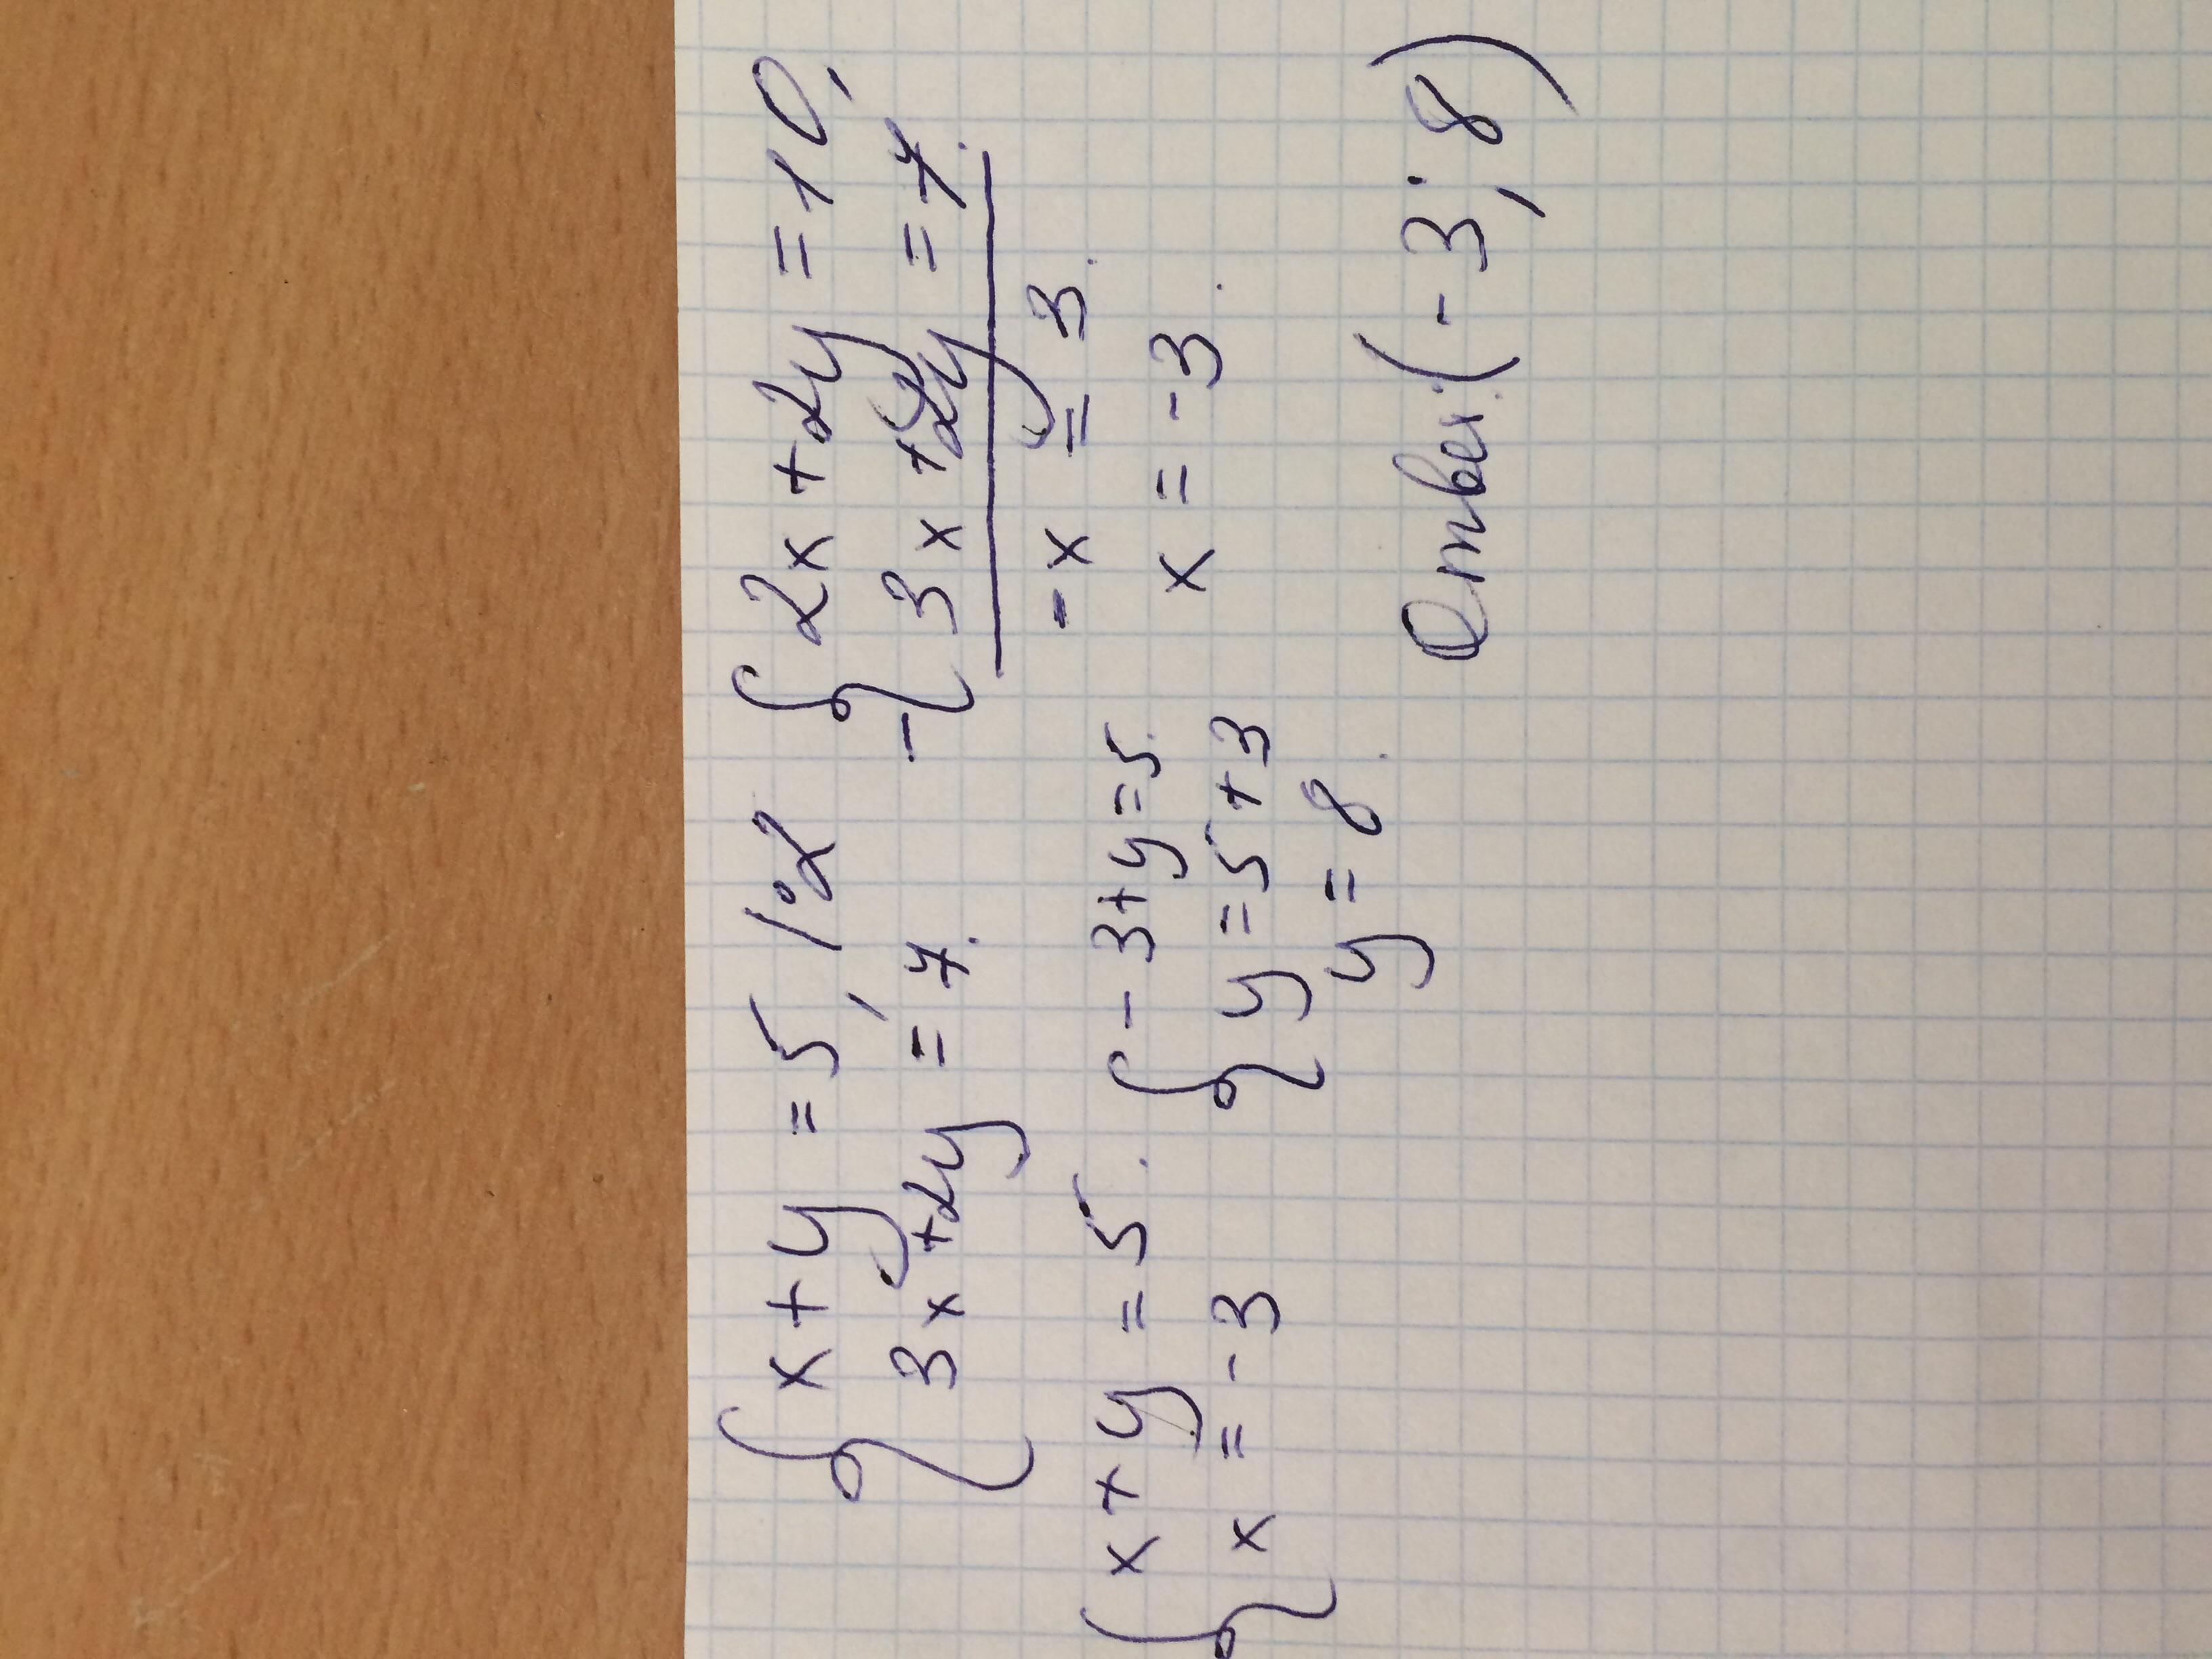 { x + y = 5, |·2
3x + 2y = 7.
- { 2x + 2y = 10,
3x + 2y = 7.
-x = 3.
x = -3.
{ x + y = 5.
x = -3
{ -3 + y = 5.
y = 5 + 3
y = 8.
Ответ: (-3; 8)